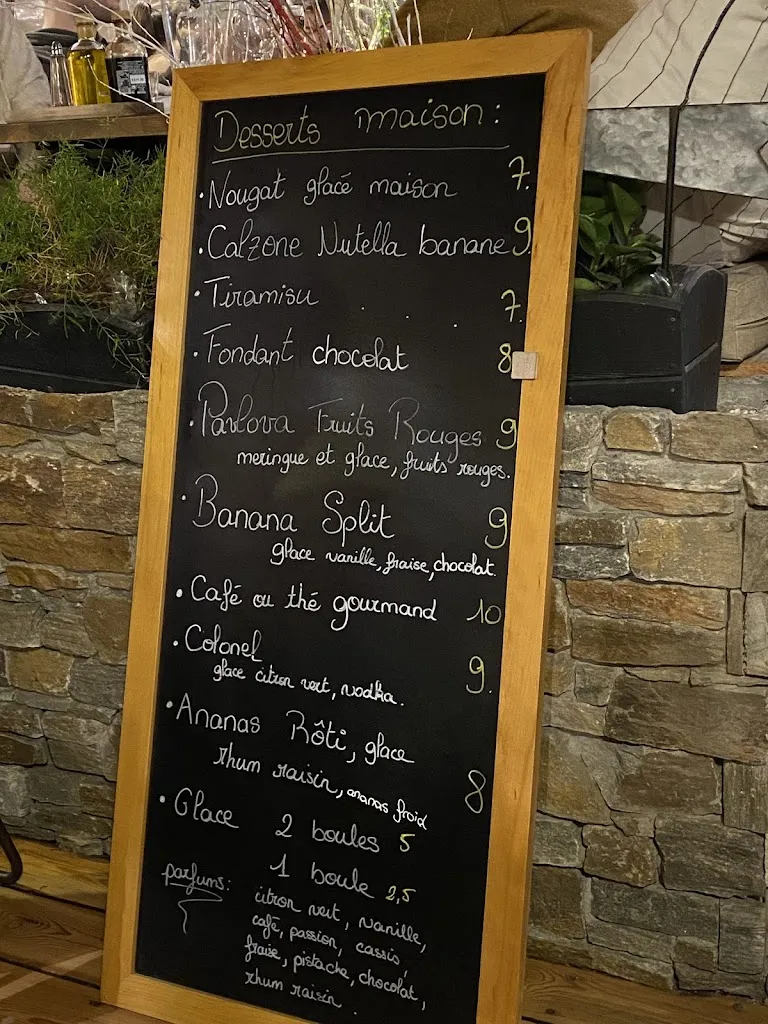 Desserts maison :
• Nougat glacé maison 7.
• Calzone Nutella banane 9.
• Tiramisu 7.
• Fondant chocolat 8
• Pavlova Fruits Rouges 9
meringue et glace, fruits rouges.
• Banana Split 9
glace vanille, fraise, chocolat.
• Café ou thé gourmand 10
• Colonel 9.
glace citron vert, vodka.
• Ananas Rôti, glace
rhum raisin, ananas froid 8
• Glace 2 boules 5
1 boule 2,5
parfums :
citron vert, vanille,
café, passion, cassis,
fraise, pistache, chocolat,
rhum raisin.